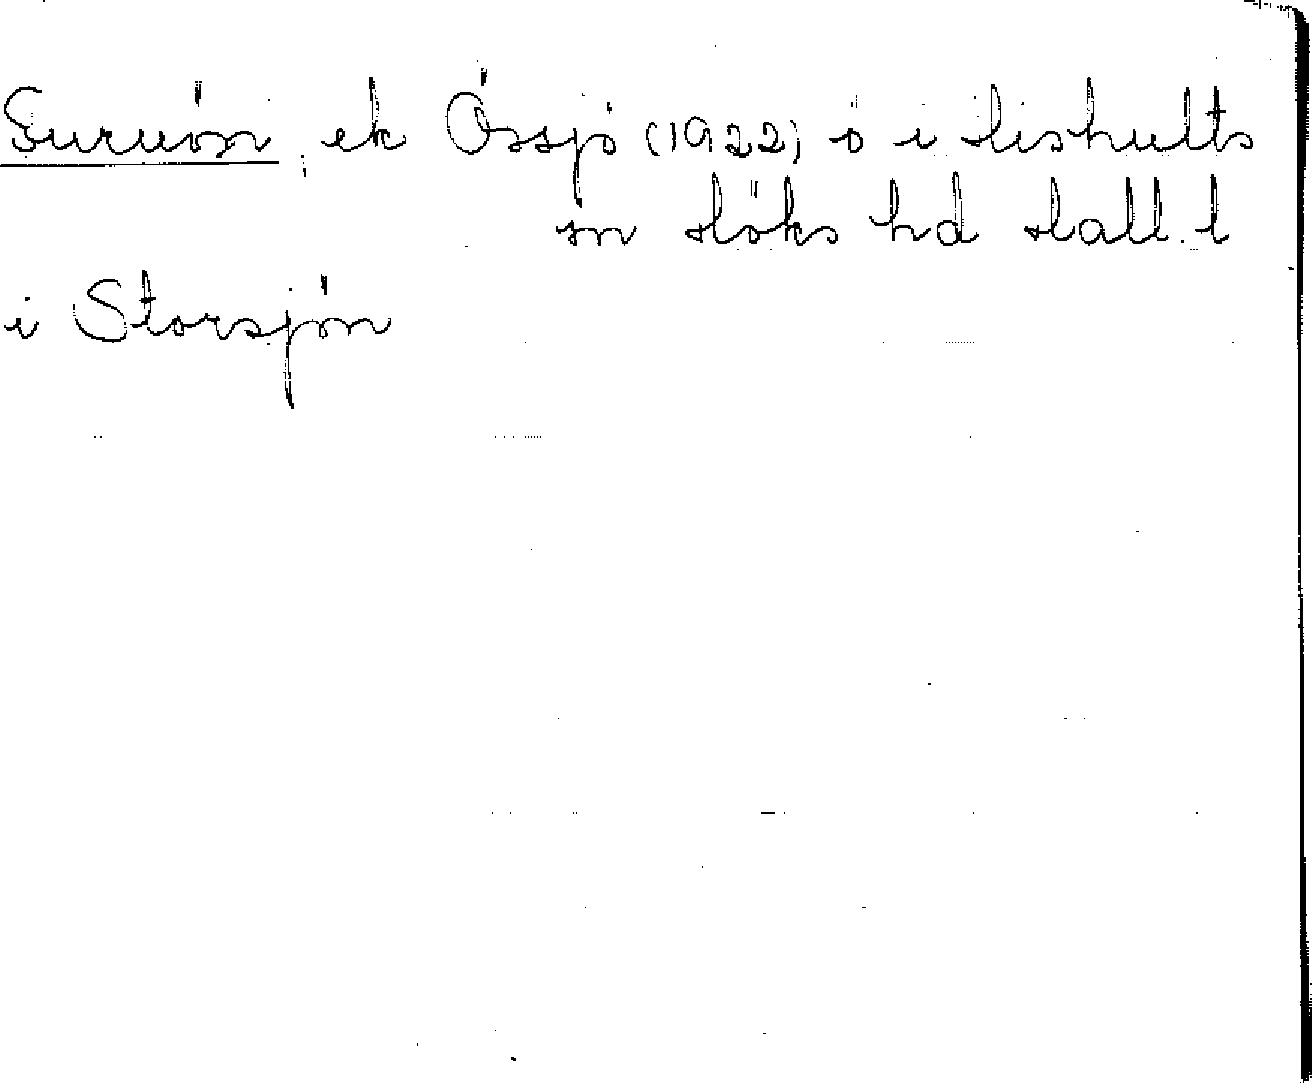 Suruön, ek Össjö (1922) ö i Hishults
sn Höks hd Hall. l
i Storsjön